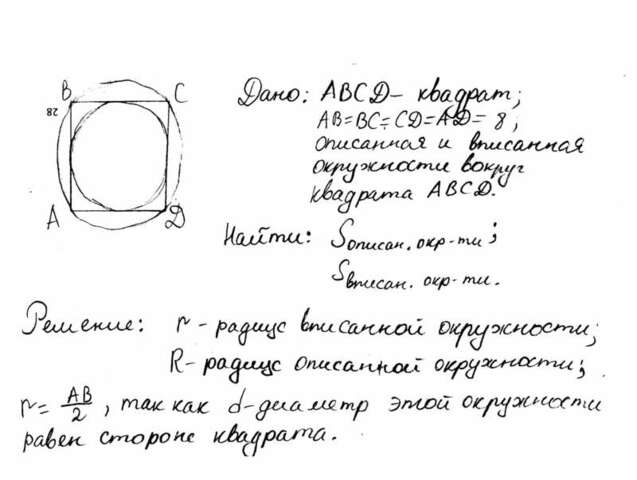 B C
28
A D
Дано: ABCD - квадрат;
AB=BC=CD=AD= 8;
описанная и вписанная
окружности вокруг
квадрата ABCD.
Найти: Sописан. окр-ти;
Sвписан. окр-ти.
Решение: r - радиус вписанной окружности;
R - радиус описанной окружности;
r = AB/2, так как d-диаметр этой окружности
равен стороне квадрата.